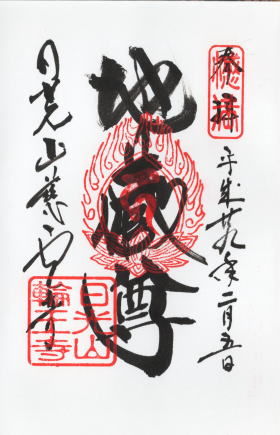 奉拝
平成廿九年二月五日
地蔵尊
日光山
日光山
輪王寺